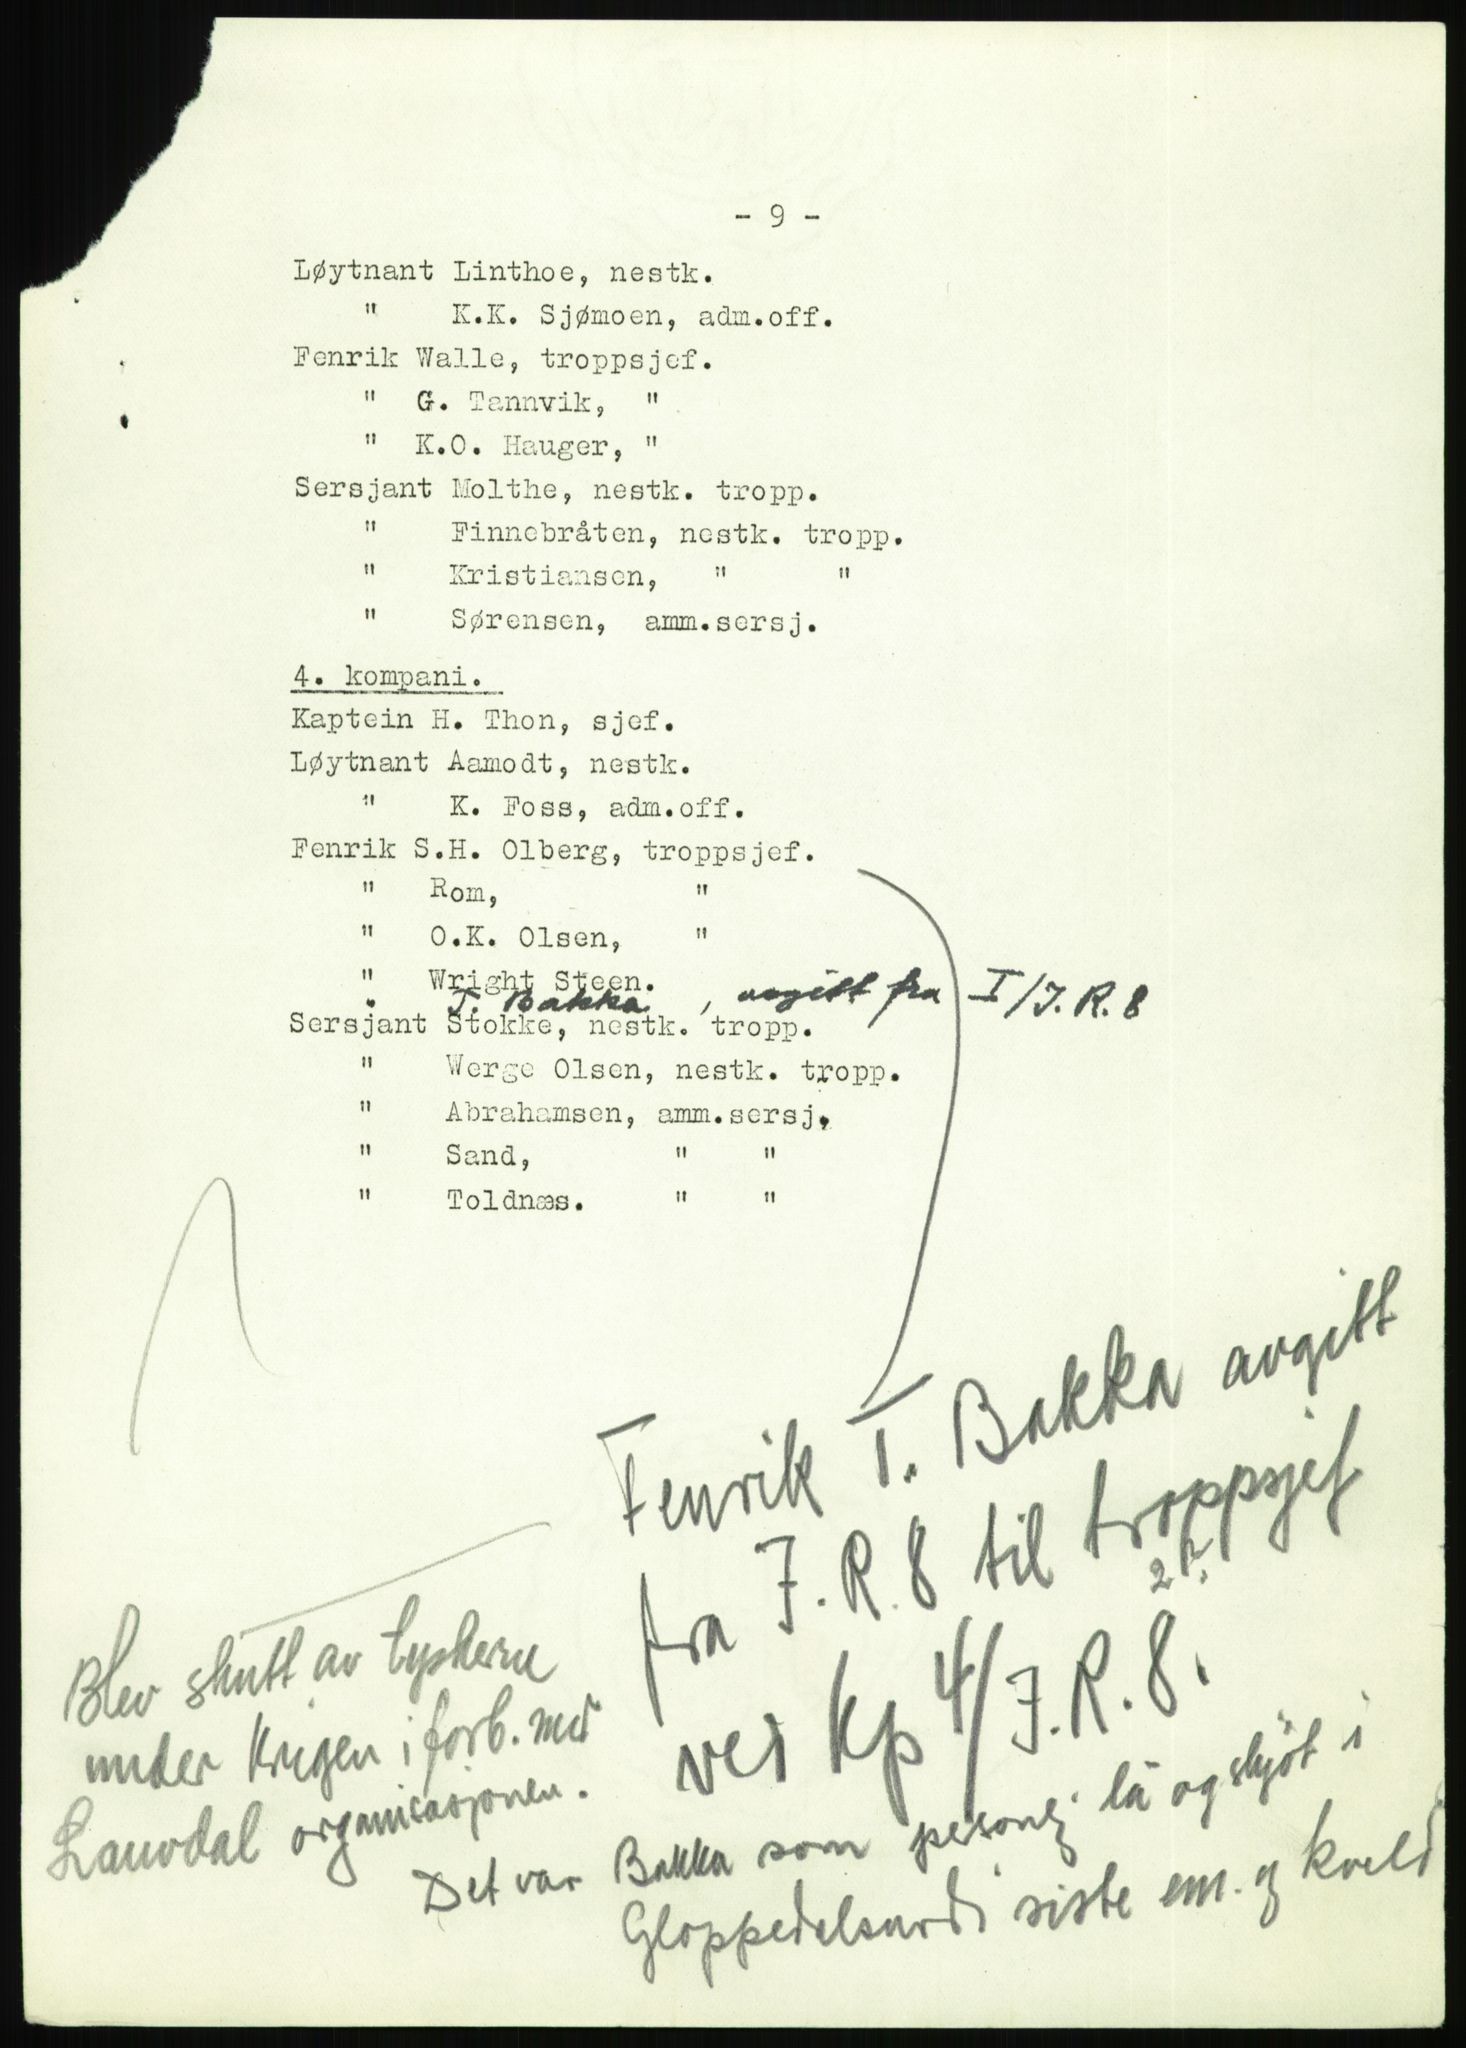 - 9 -
Løytnant Linthoe, nestk.
" K.K. Sjømoen, adm.off.
Fenrik Walle, troppsjef.
" G. Tannvik, "
" K.O. Hauger, "
Sersjant Molthe, nestk. tropp.
" Finnebråten, nestk. tropp.
" Kristiansen, " "
" Sørensen, amm.sersj.
4. kompani.
Kaptein H. Thon, sjef.
Løytnant Aamodt, nestk.
" K. Foss, adm.off.
Fenrik S.H. Olberg, troppsjef.
" Rom, "
" O.K. Olsen, "
" Wright Steen.
" T. Bakka, avgitt fra I/J.R. 8
Sersjant Stokke, nestk. tropp.
" Werge Olsen, nestk. tropp.
" Abrahamsen, amm.sersj.
" Sand, " "
" Toldnæs. " "
Fenrik T. Bakka avgitt
fra J.R. 8 til troppsjef
ved Kp 4/J.R. 8.
Blev skutt av tyskerne
under krigen i forb. med
Lauvdal organisasjonen.
Det var Bakka som lå og skjöt i
Gloppedalsurdi siste em. og kveld